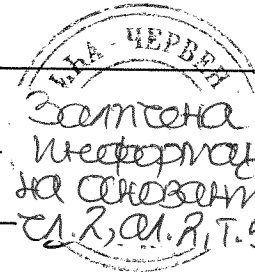 ЧЕРВЕН
Заличена
информац
на основани
чл. 2, ал. 2, т. 5